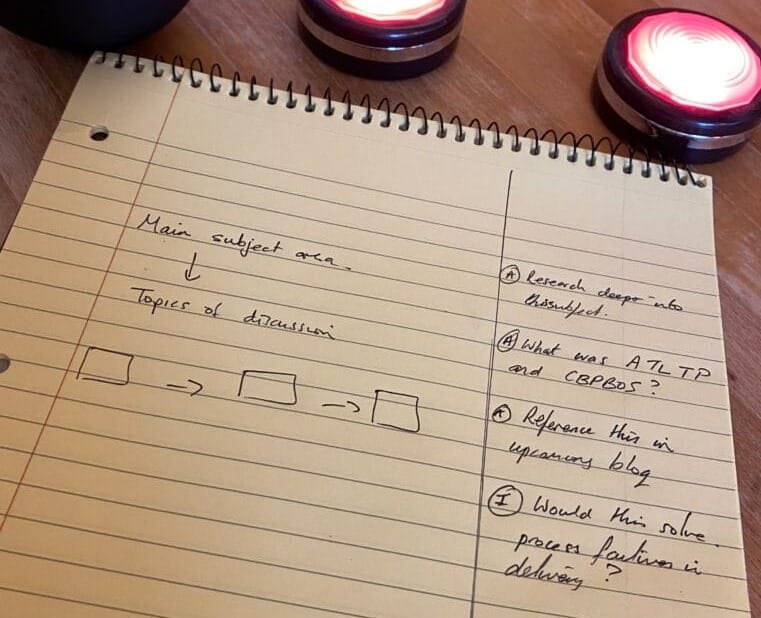 Main subject area.
Topics of discussion
(A) Research deeper into
this subject.
(A) What was ATLTP
and CBPBOS?
(A) Reference this in
upcoming blog
(I) Would this solve
process failures in
delivery?